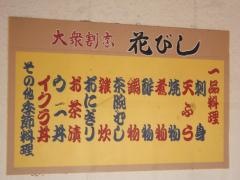 大衆割烹 花びし
一品料理
刺身
天ぷら
焼物
煮物
酢物
鍋物
茶碗むし
雑炊
おにぎり
お茶漬
ウニ丼
イクラ丼
その他季節料理